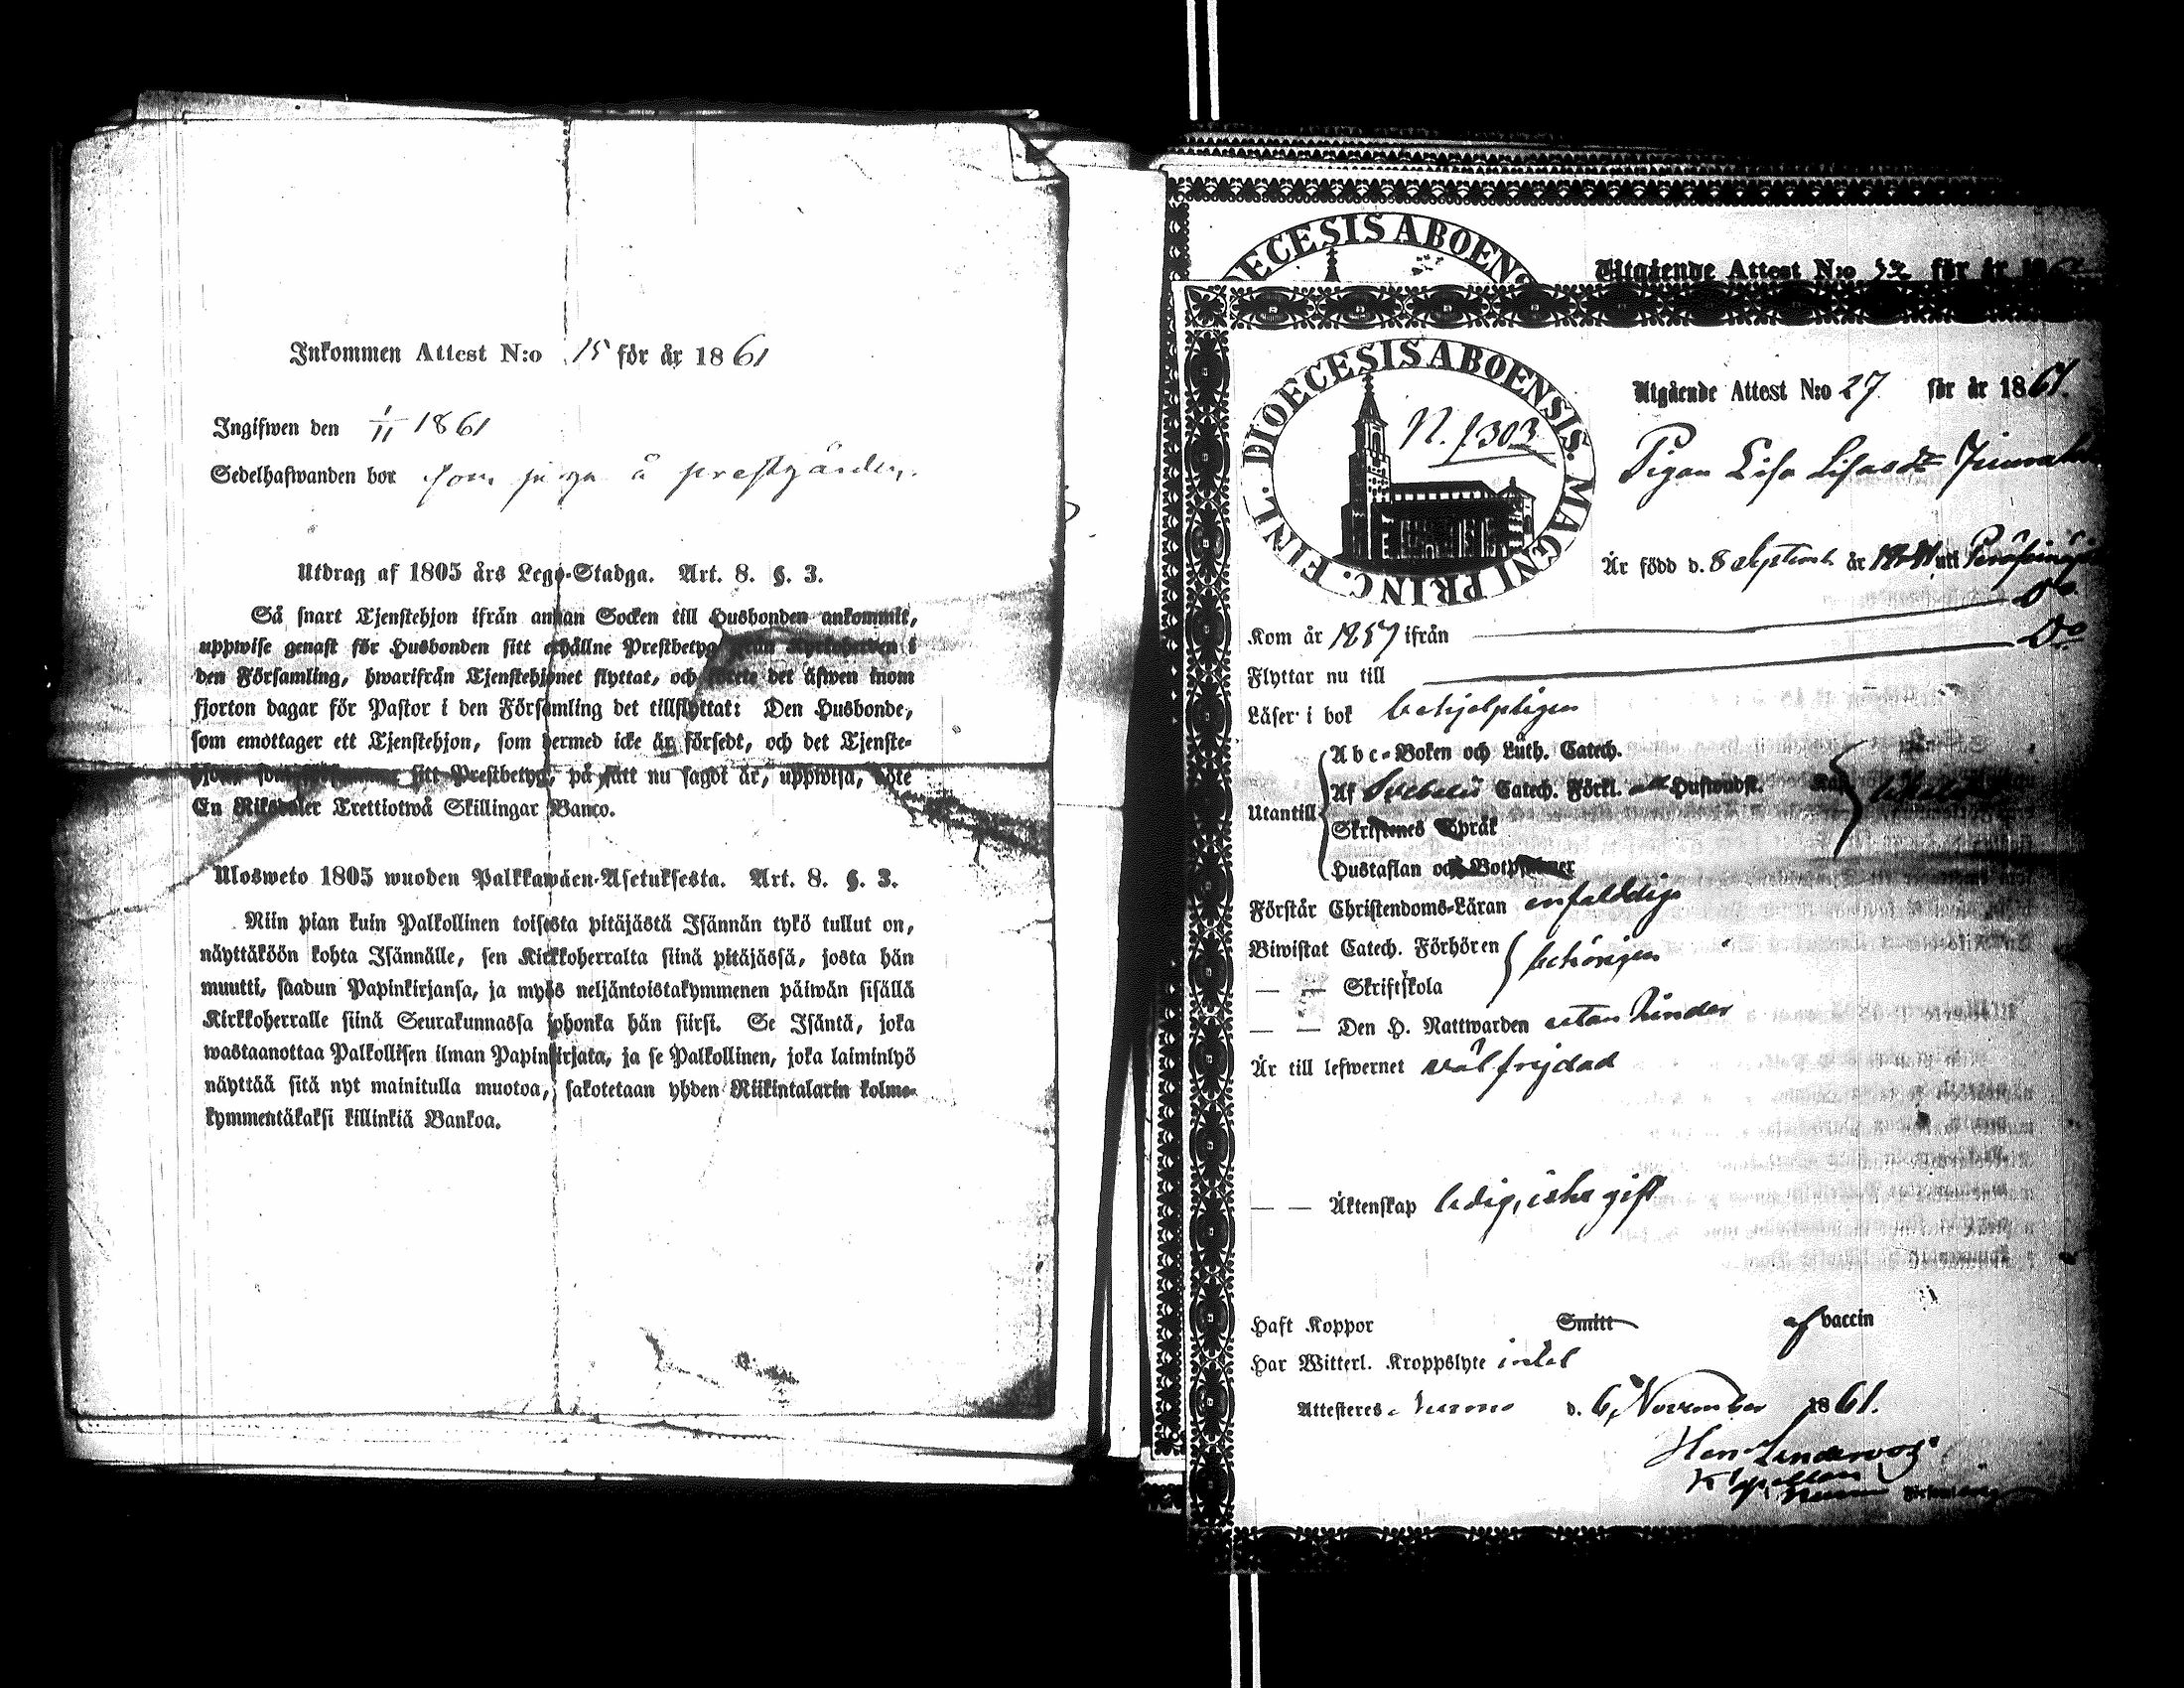 Inkommen Attest N:o 15 för år 1861
Ingifwen den 1/11 1861
Sedelhafwanden bor som piga å prestgården.
Utdrag af 1805 års Lego-Stadga. Art. 8. §. 3.
Så snart Tjenstehjon ifrån annan Socken till Husbonden ankommit,
uppwise genast för Husbonden sitt erhållne Prestbetyg från Kyrkoherden i
den Församling, hwarifrån Tjenstehjonet flyttat, och förete det äfwen inom
fjorton dagar för Pastor i den Församling det tillflyttat: Den Husbonde,
som emottager ett Tjenstehjon, som dermed icke är försedt, och det Tjenste-
sitt Prestbetyg, på sätt nu sagdt är, uppwisa, böte
En Riksdaler Trettiotwå Skillingar Banco.
Ulosweto 1805 wuoden Palkkawäen-Asetuksesta. Art. 8. §. 3.
Niin pian kuin Palkollinen toisesta pitäjästä Isännän tykö tullut on,
näyttäköön kohta Isännälle, sen Kirkkoherralta siinä pitäjässä, josta hän
muutti, saadun Papinkirjansa, ja myös neljäntoistakymmenen päiwän sisällä
Kirkkoherralle siinä Seurakunnassa johonka hän siirsi. Se Isäntä, joka
wastaanottaa Palkollisen ilman Papinkirjata, ja se Palkollinen, joka laiminlyö
näyttää sitä nyt mainitulla muotoa, sakotetaan yhden Riikintalarin kolme-
kymmentäkaksi killinkiä Bankoa.
DIOECESIS ABOENS
Utgående Attest N:o 52 för år 186
DIOECESIS ABOENSIS. MAGNI PRINC. FINL.
N. 1303
Utgående Attest N:o 27 för år 1861.
Pigan Lisa Lisasdr
Är född d. 8 Septemb. år uti
Kom år 1857 ifrån Do
Flyttar nu till Do
Läser i bok behjelpligen
Utantill
Abc-Boken och Luth. Catech.
Af Svebelii Catech. Förkl. Huswudst.
Skriftenes Språk
Hustaflan och Botpsalmer
Förstår Christendoms-Läran enfaldigt
Biwistat Catech. Förhören behörigen
— — Skriftskola
— — Den H. Nattwarden utan hinder
Är till lefwernet väl frejdad
— — Äktenskap ledig, icke gift
Haft Koppor Smitt af vaccin
Har Witterl. Kroppslyte intet
Attesteres d. 6 November 1861.